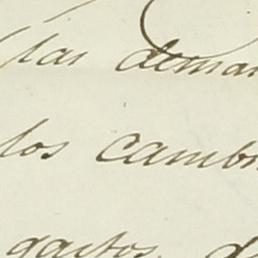 las deman
los cambi
gastos, d